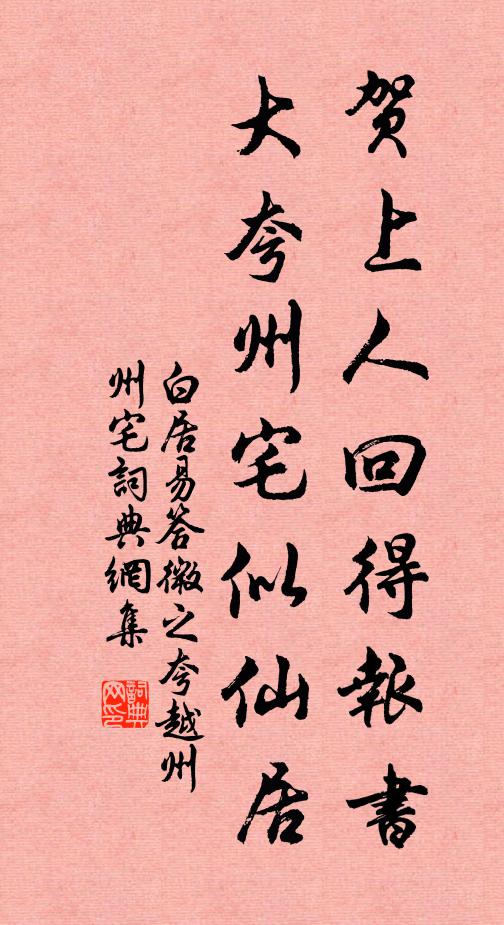 贺上人回得報書
大夸州宅似仙居
白居易答微之夸越州
州宅詞典網集
詞典
网印